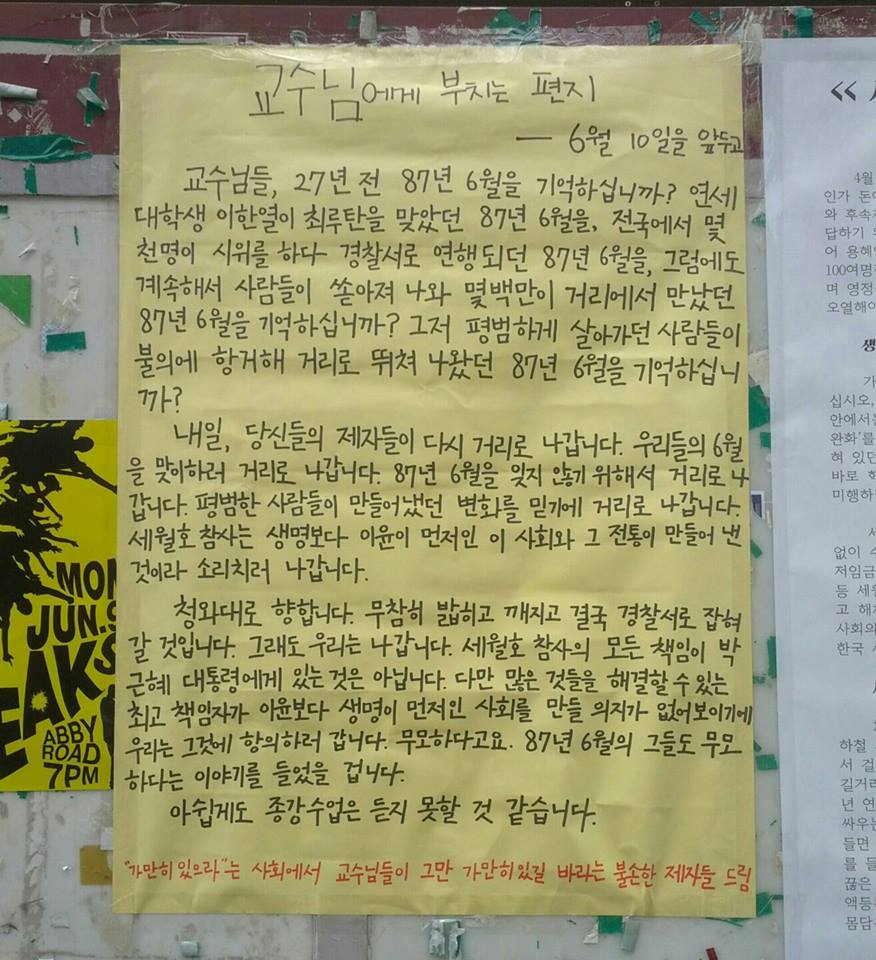 교수님에게 부치는 편지
— 6월 10일을 앞두고
교수님들, 27년 전 87년 6월을 기억하십니까? 연세
대학생 이한열이 최루탄을 맞았던 87년 6월을, 전국에서 몇
천명이 시위를 하다 경찰서로 연행되던 87년 6월을, 그럼에도
계속해서 사람들이 쏟아져 나와 몇백만이 거리에서 만났던
87년 6월을 기억하십니까? 그저 평범하게 살아가던 사람들이
불의에 항거해 거리로 뛰쳐 나왔던 87년 6월을 기억하십니
까?
내일, 당신들의 제자들이 다시 거리로 나갑니다. 우리들의 6월
을 맞이하러 거리로 나갑니다. 87년 6월을 잊지 않기 위해서 거리로 나
갑니다. 평범한 사람들이 만들어냈던 변화를 믿기에 거리로 나갑니다.
세월호 참사는 생명보다 이윤이 먼저인 이 사회와 그 전통이 만들어 낸
것이라 소리치러 나갑니다.
청와대로 향합니다. 무참히 밟히고 깨지고 결국 경찰서로 잡혀
갈 것입니다. 그래도 우리는 나갑니다. 세월호 참사의 모든 책임이 박
근혜 대통령에게 있는 것은 아닙니다. 다만 많은 것들을 해결할 수 있는
최고 책임자가 이윤보다 생명이 먼저인 사회를 만들 의지가 없어보이기에
우리는 그것에 항의하러 갑니다. 무모하다고요. 87년 6월의 그들도 무모
하다는 이야기를 들었을 겁니다.
아쉽게도 종강수업은 듣지 못할 것 같습니다.
"가만히 있으라"는 사회에서 교수님들이 그만 가만히있길 바라는 불손한 제자들 드림
MON
JUN.9
EAKS
ABBY
ROAD
7PM
《
4월
인가 돈
와 후속
답하기
어 용혜
100여명
며 영정
오열해
십시오,
안에서는
완화'를
혀 있던
바로
미행하
없이
저임금
등 세월
고 해
사회의
한국
하철
서 걸
길거리
년 연
싸우는
들면
를 들
끊은
액등
몸담